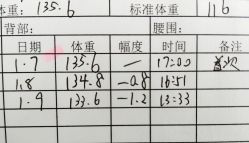 体重: 135.6 标准体重 116
背部: 腰围:
日期 体重 幅度 时间 备注
1.7 135.6 — 17:00 首次
1.8 134.8 -0.8 16:51
1.9 133.6 -1.2 13:33